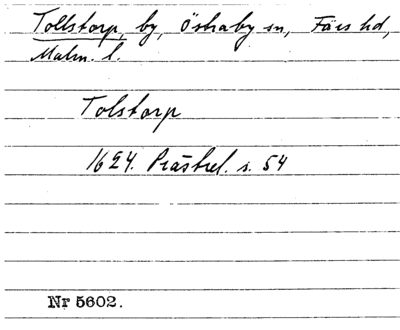 Tollstorp, by, Östraby sn, Färs hd,
Malm. l.
Tolstorp
1624. Prästrel. s. 54
Nr 5602.